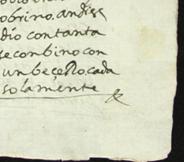 obrino. andise
dio contanta
se conbino con
un beçerro cada
solamente